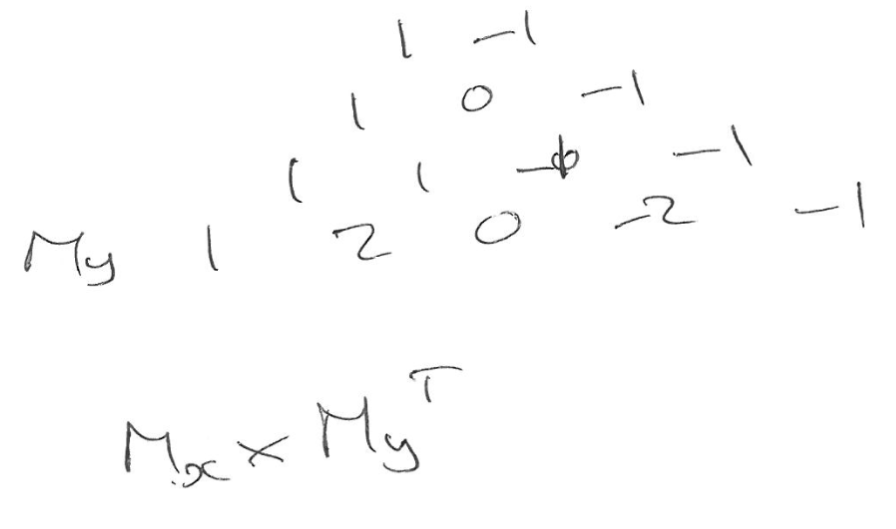 1 -1
1 0 -1
1 1 -1 -1
My 1 2 0 -2 -1
Mx × My^T